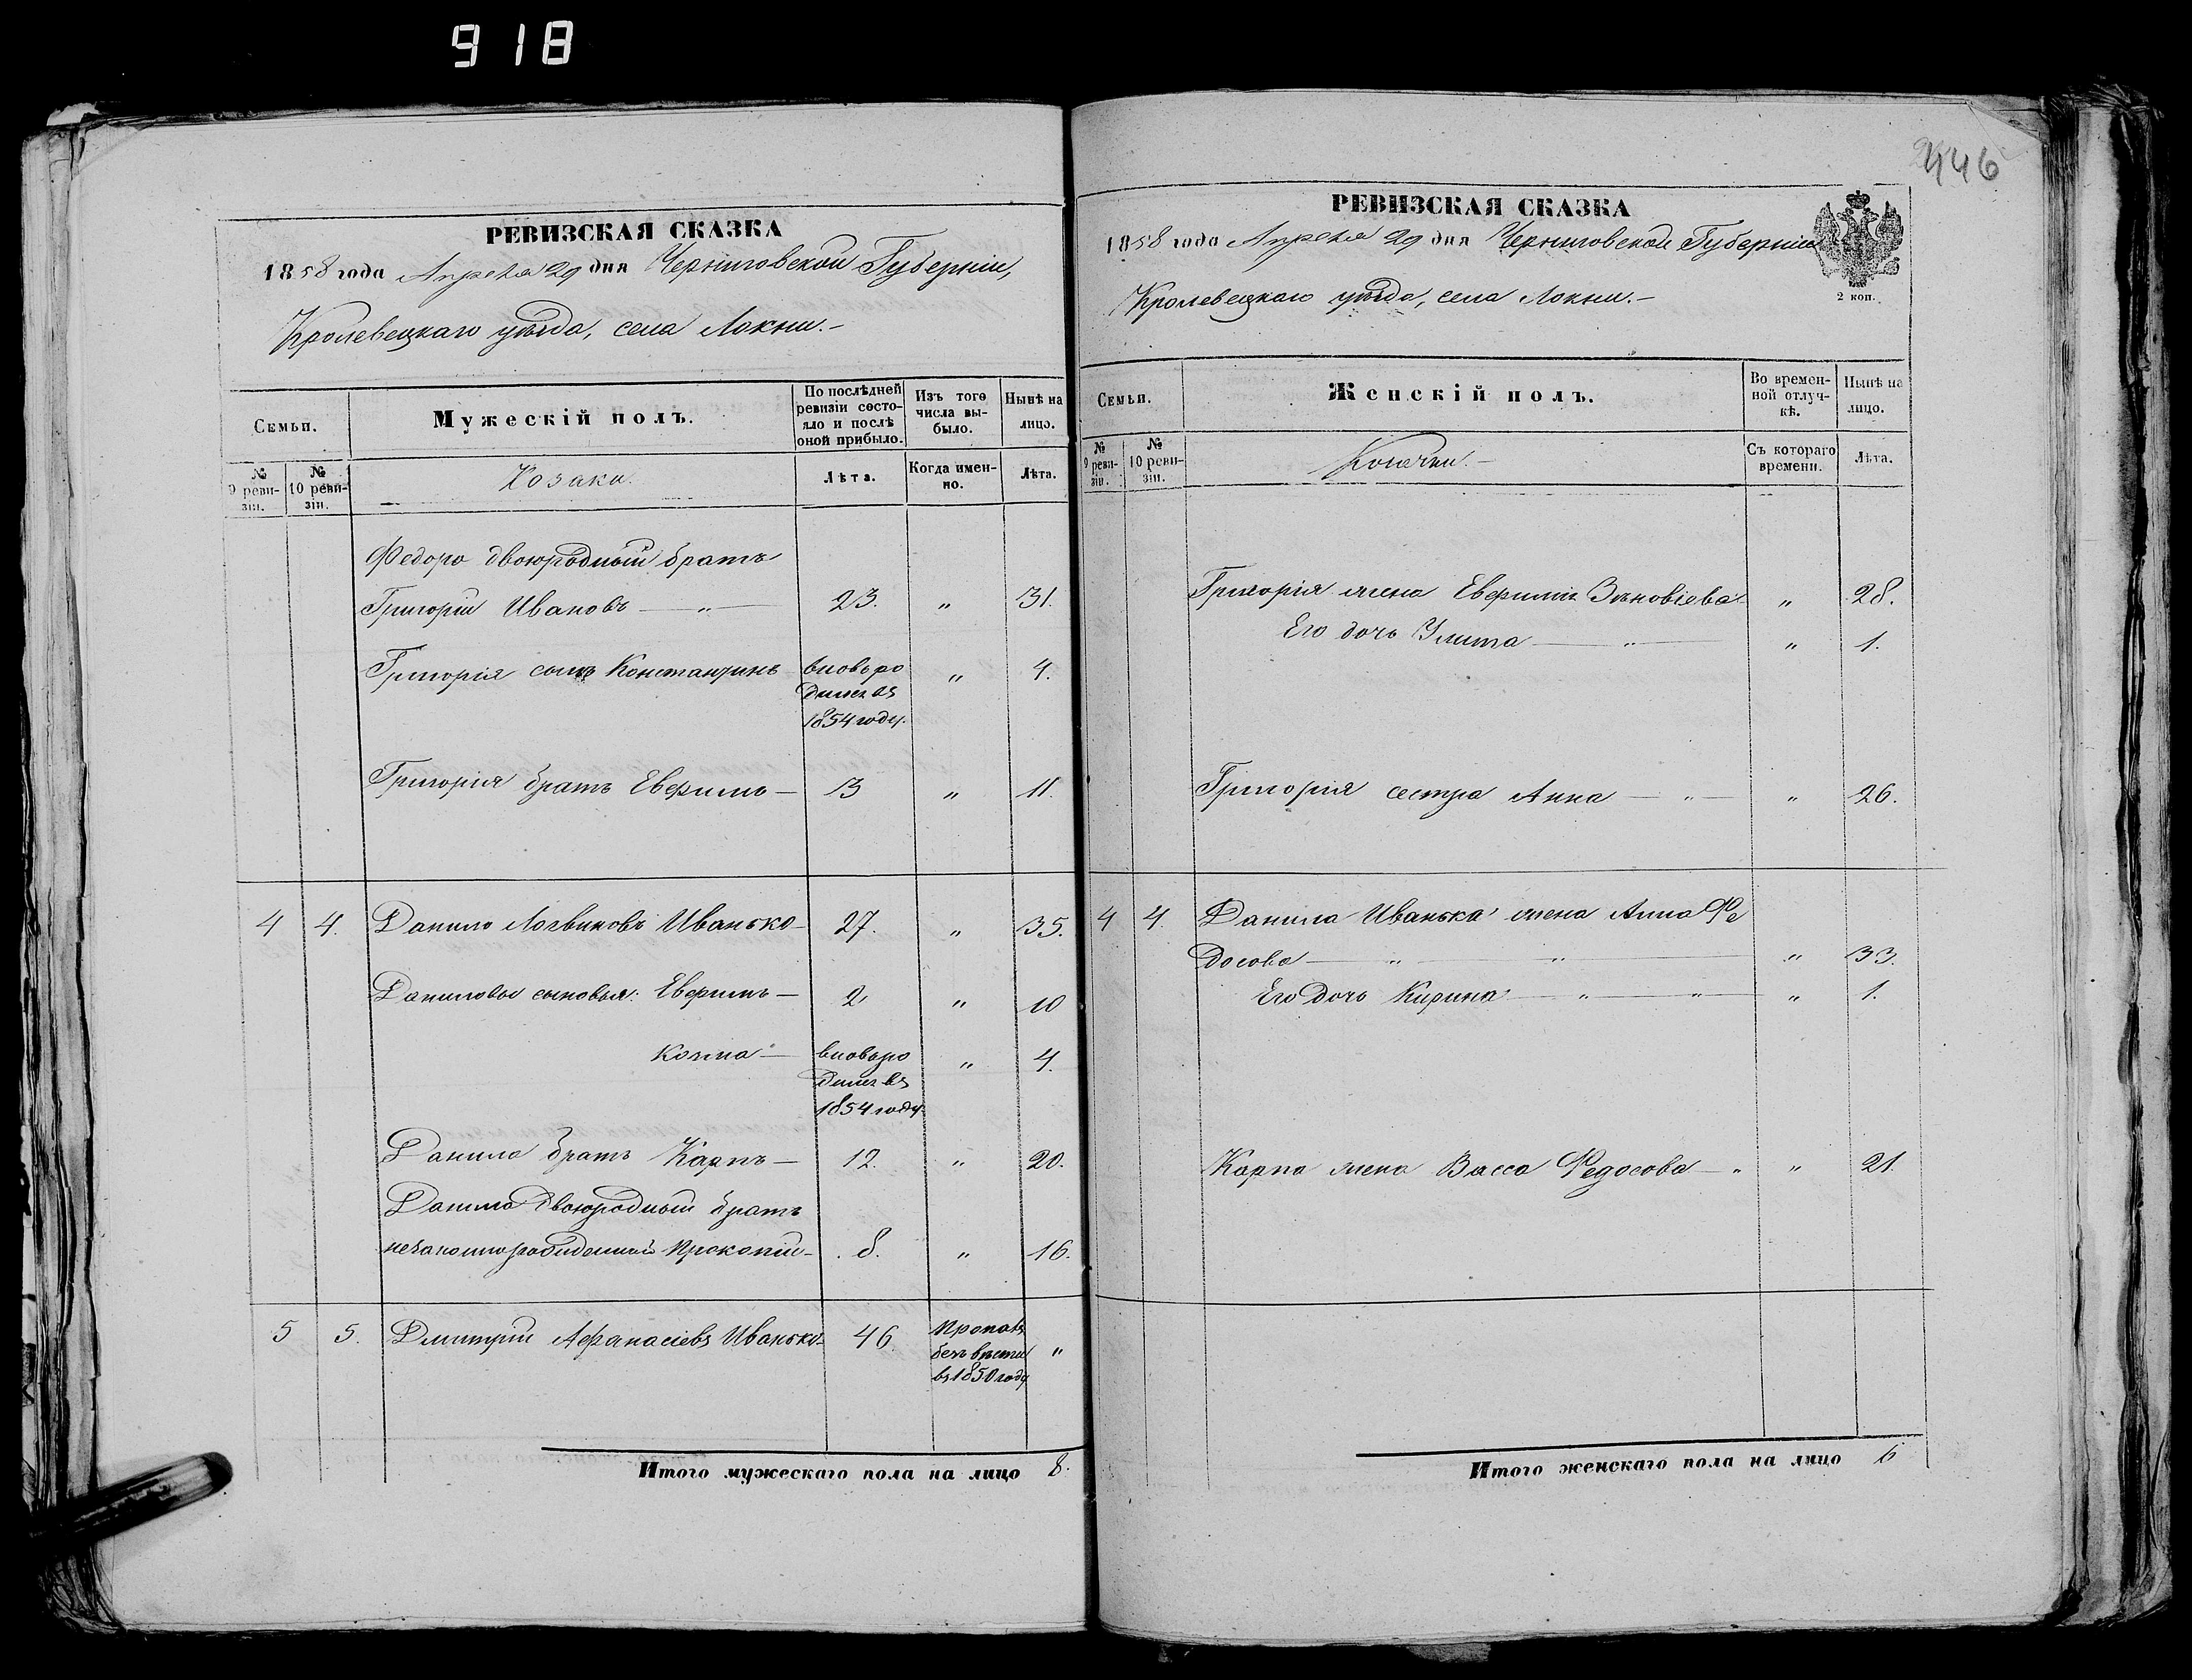 918
446
РЕВИЗСКАЯ СКАЗКА
1858 года Апреля 29 дня Черниговской Губерніи,
Кролевецкаго уѣзда, села Локни.-
Семьи.
Мужескій полъ.
По послѣдней ревизіи состояло и послѣ оной прибыло.
Изъ того числа выбыло.
Нынѣ на лицо.
№ 9 ревизіи.
№ 10 ревизіи.
Козаки.
Лѣта.
Когда именно.
Лѣта.
Федора двоюродный братъ
Григорій Ивановъ — „ — 23. „ 31.
Григорія сынъ Константинъ вновь ро „ 4.
дился въ
1854 году.
Григорія братъ Евфимъ — 13 „ 11.
4 4. Данило Логвиновъ Иванько — 27. „ 35.
Даниловы сыновья: Евфимъ — 2 „ 10
Козма — вновь ро „ 4.
дился въ
1854 году.
Данила братъ Карпъ — 12. „ 20.
Данила двоюродный братъ
незаконнорожденный Прокопій — 8. „ 16.
5 5. Дмитрий Афанасіевъ Иванько — 46 Пропалъ „
безъ вѣсти
въ 1850 году
Итого мужескаго пола на лицо 8.
РЕВИЗСКАЯ СКАЗКА
1858 года Апреля 29 дня Черниговской Губерніи
Кролевецкаго уѣзда, села Локни.-
2 коп.
Семьи.
Женскій полъ.
Во временной отлучкѣ.
Нынѣ на лицо.
№ 9 ревизіи.
№ 10 ревизіи.
Козачки.-
Съ котораго времени.
Лѣта.
Григорія жена Евфимія Зѣновіева „ 28.
Его дочь Улита — „ — „ 1.
Григорія сестра Анна — „ — „ 26.
4 4. Данила Иванька жена Анна Фе
досова — „ — „ — „ 33.
Его дочь Кирина — „ — „ — „ 1.
Карпа жена Васса Федосова — „ „ 21.
Итого женскаго пола на лицо 6